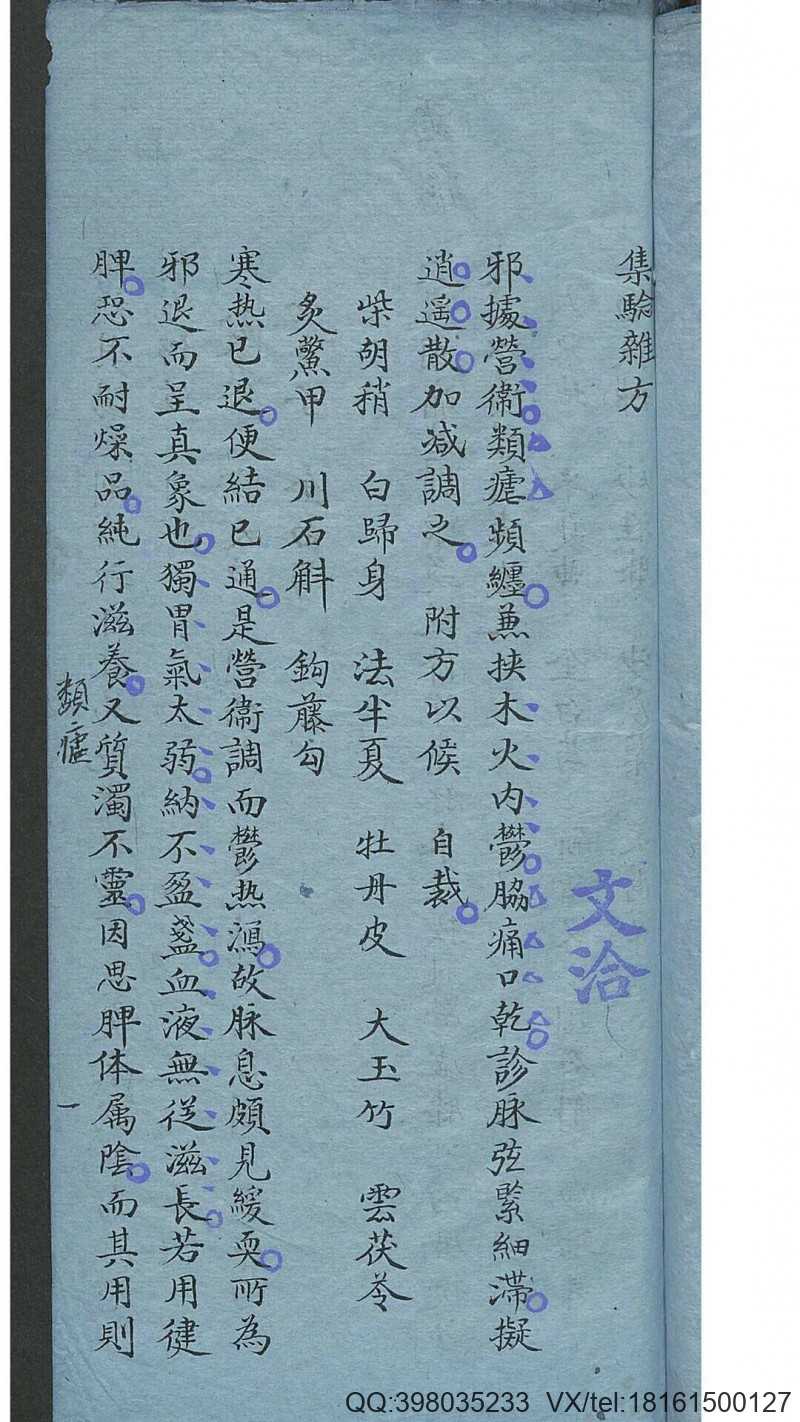 集騐雜方
文洽
邪據營衛類瘧頻纏兼挾木火内鬱脇痛口乾診脉弦緊細滯擬
逍遥散加减調之　附方以候　自裁
柴胡稍　白歸身　法半夏　牡丹皮　大玉竹　雲茯苓
炙鱉甲　川石斛　鈎藤勾
寒热已退便結已通是營衛調而鬱热瀉故脉息頗見緩耎所為
邪退而呈真象也獨胃氣太弱納不盈盞血液無從滋長若用健
脾恐不耐燥品純行滋養又質濁不靈因思脾体属陰而其用則
類瘧
一
QQ:398035233 VX/tel:18161500127